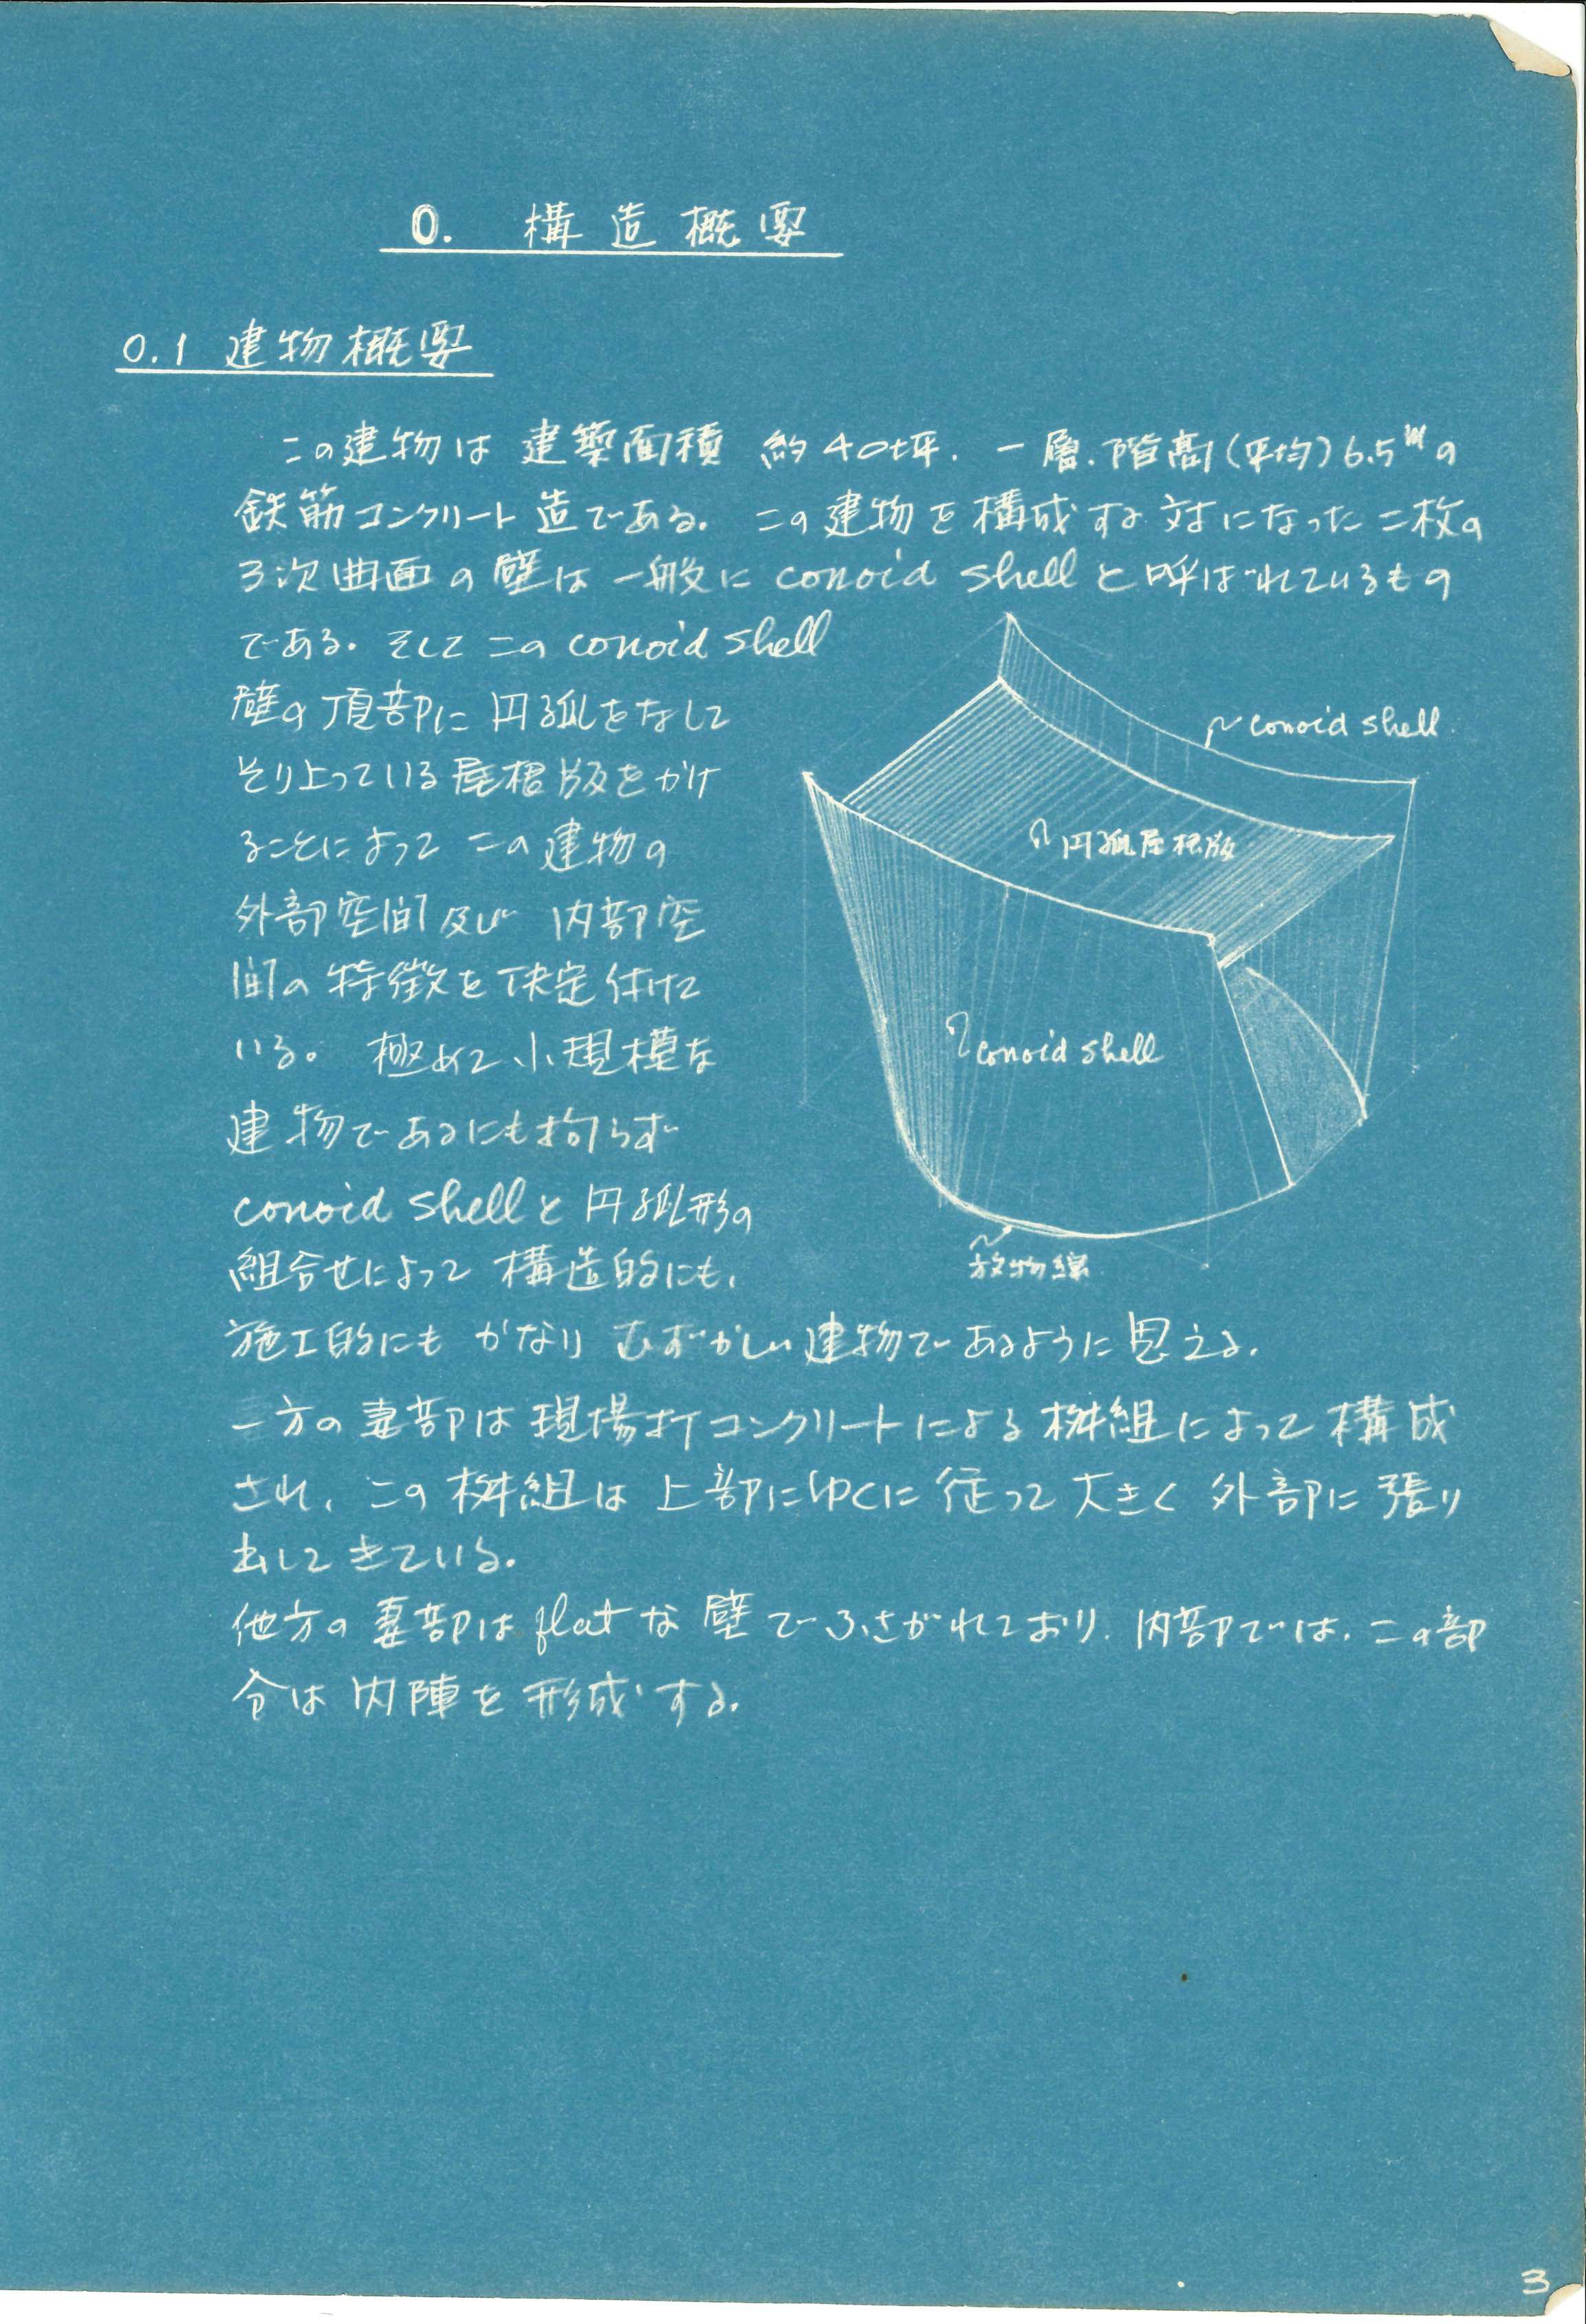 0. 構造概要
0.1 建物概要
この建物は 建築面積 約40坪. 一層. 階高(平均)6.5mの
鉄筋コンクリート造である。この建物を構成する対になった二枚の
3次曲面の壁は一般にconoid shellと呼ばれているもの
である。そしてこのconoid shell
壁の頂部に円弧をなして
そり上っている屋根版をかけ
ることによってこの建物の
外部空間及び内部空
間の特徴を決定付けて
いる。極めて小規模な
建物であるにも拘らず
conoid shellと円弧形の
組合せによって構造的にも、
施工的にもかなりむずかしい建物であるように思える.
一方の妻部は現場打コンクリートによる桝組によって構成
され、この桝組は上部にゆくに従って大きく外部に張り
出してきている。
他方の妻部はflatな壁でふさがれており. 内部では. この部
分は内陣を形成する.
conoid shell.
円弧屋根版
conoid shell
放物線
3